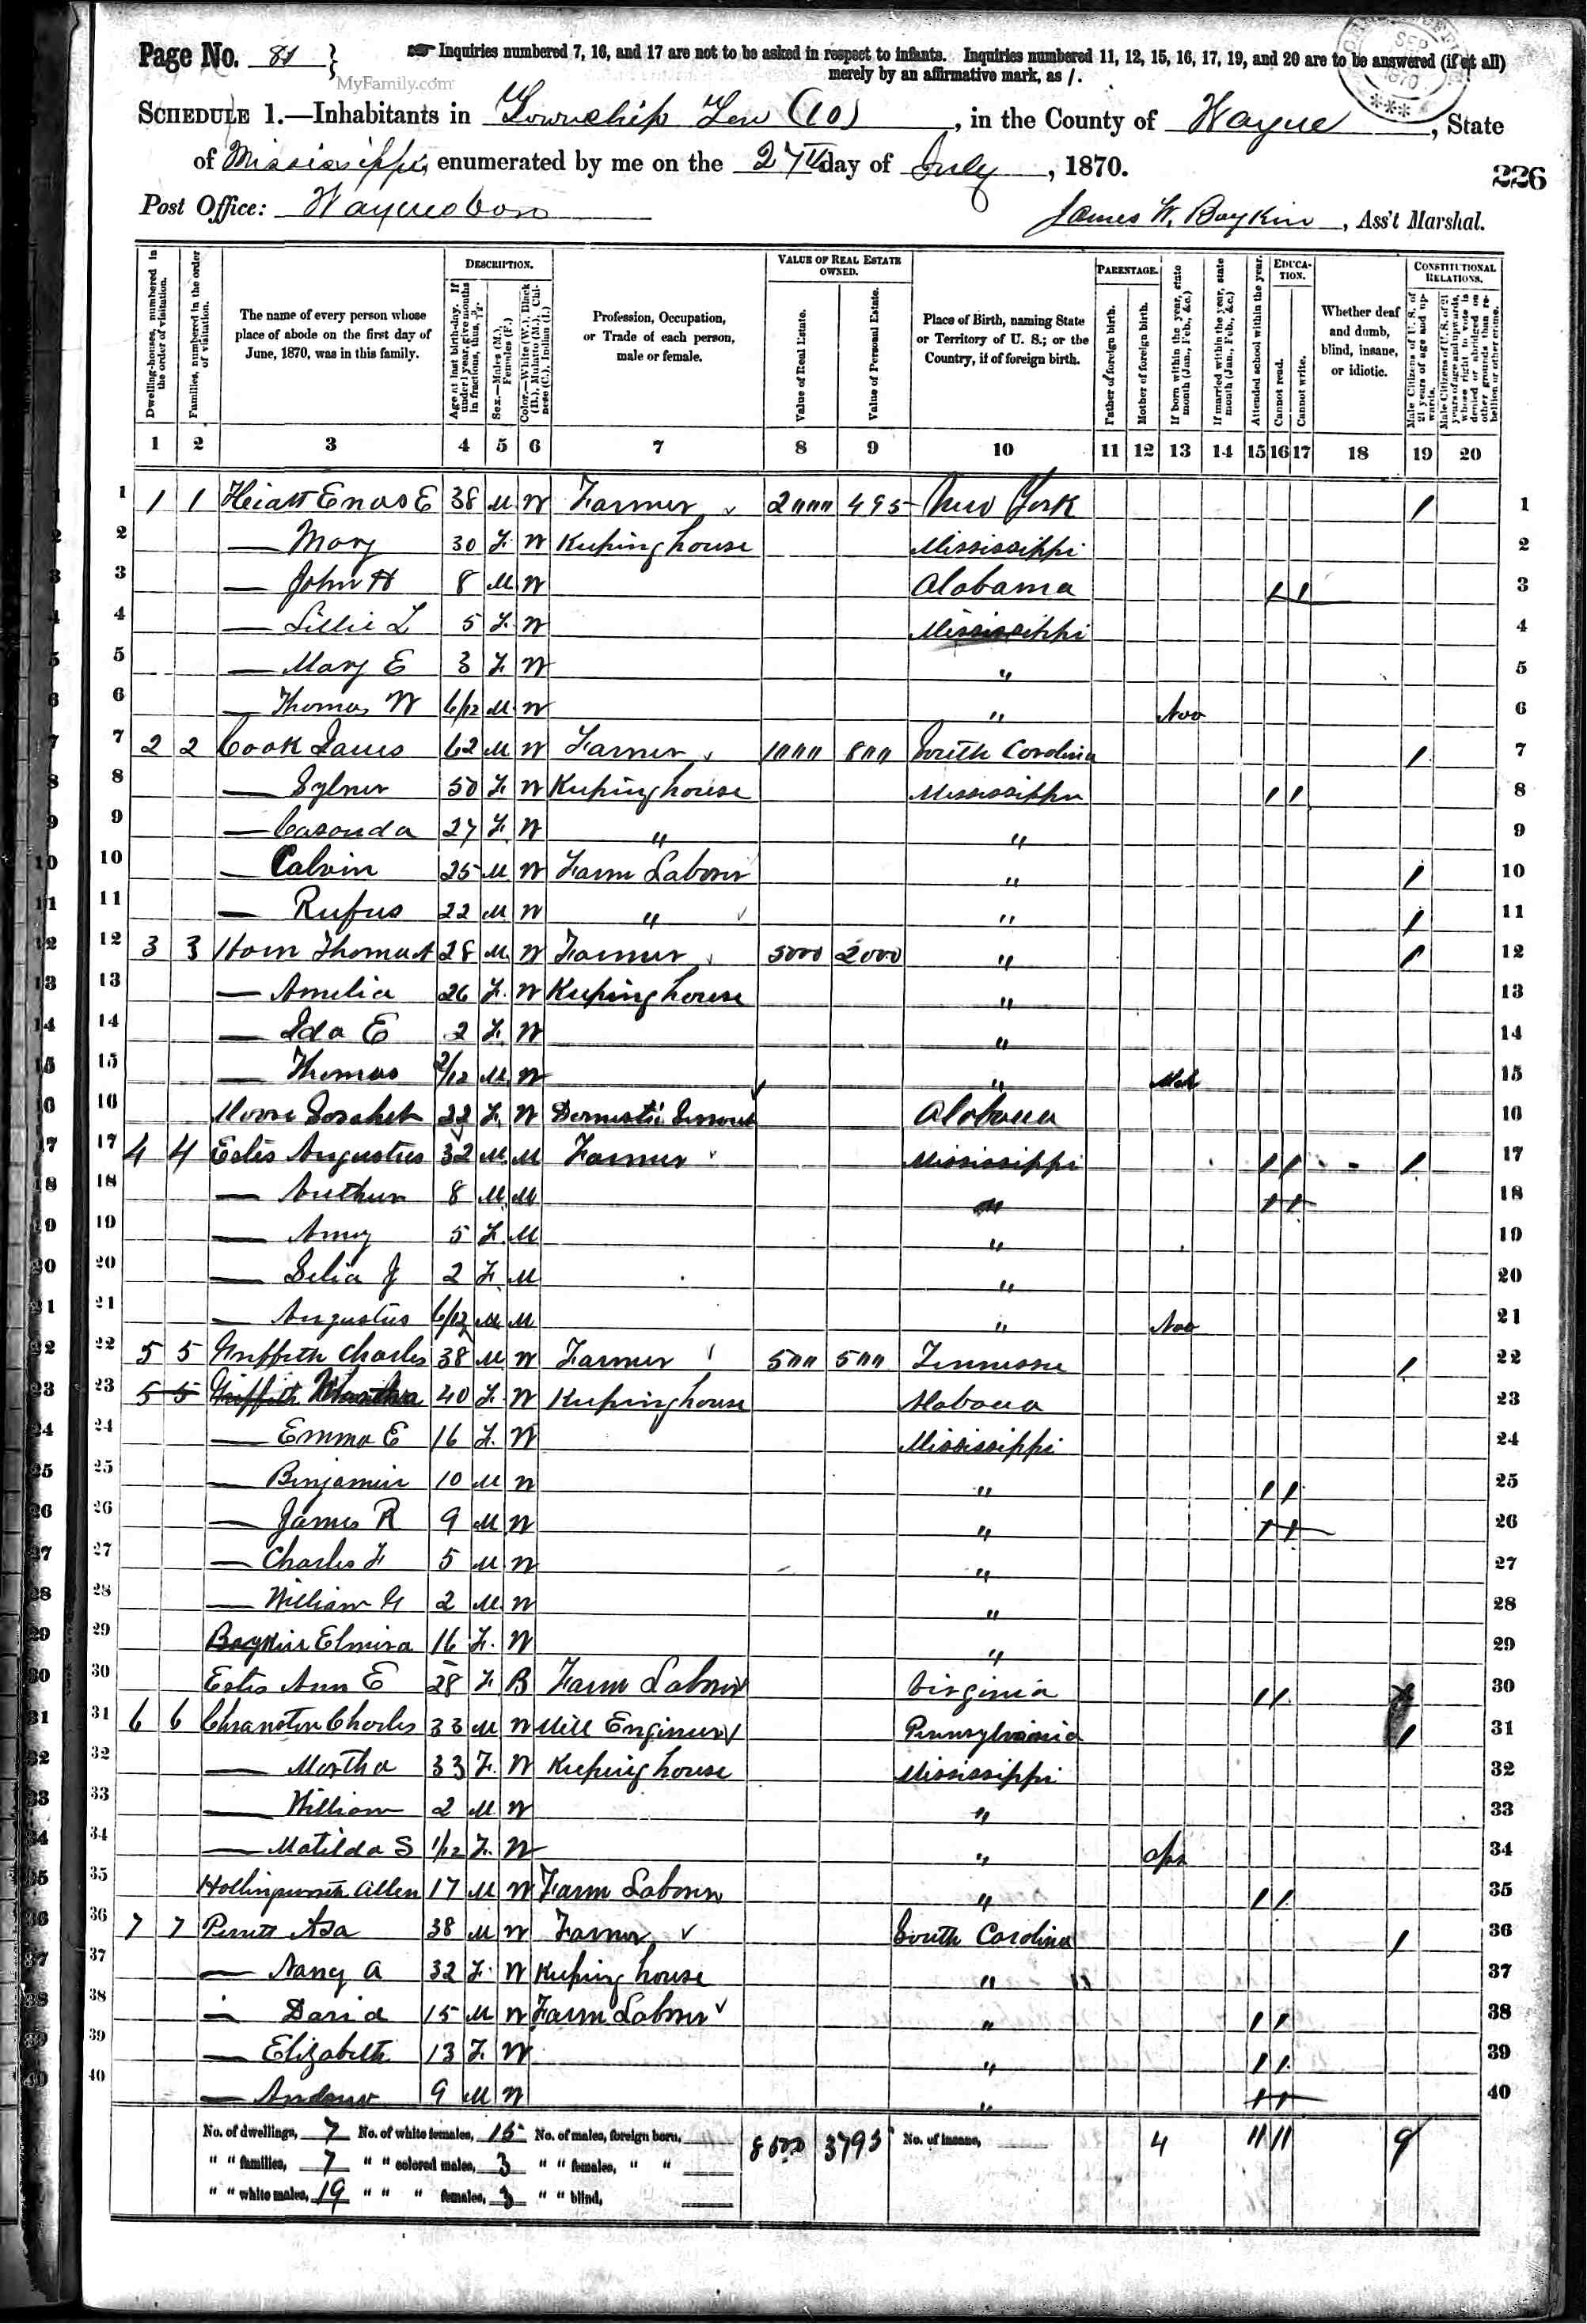 Page No. 81 }
☞ Inquiries numbered 7, 16, and 17 are not to be asked in respect to infants. Inquiries numbered 11, 12, 15, 16, 17, 19, and 20 are to be answered (if at all)
merely by an affirmative mark, as /.
MyFamily.com
SEP
1870
SCHEDULE 1.—Inhabitants in Township Ten (10), in the County of Wayne, State
of Mississippi, enumerated by me on the 27th day of July, 1870.
226
Post Office: Waynesboro
James W. Boykin, Ass't Marshal.
Dwelling-houses, numbered in the order of visitation.
Families, numbered in the order of visitation.
The name of every person whose place of abode on the first day of June, 1870, was in this family.
DESCRIPTION.
Age at last birth-day. If under 1 year, give months in fractions, thus, 3/12.
Sex.—Males (M.), Females (F.)
Color.—White (W.), Black (B.), Mulatto (M.), Chinese (C.), Indian (I.)
Profession, Occupation, or Trade of each person, male or female.
VALUE OF REAL ESTATE OWNED.
Value of Real Estate.
Value of Personal Estate.
Place of Birth, naming State or Territory of U. S.; or the Country, if of foreign birth.
PARENTAGE.
Father of foreign birth.
Mother of foreign birth.
If born within the year, state month (Jan., Feb., &c.)
If married within the year, state month (Jan., Feb., &c.)
Attended school within the year.
EDUCATION.
Cannot read.
Cannot write.
Whether deaf and dumb, blind, insane, or idiotic.
CONSTITUTIONAL RELATIONS.
Male Citizens of U. S. of 21 years of age and upwards.
Male Citizens of U. S. of 21 years of age and upwards, whose right to vote is denied or abridged on other grounds than rebellion or other crime.
1 2 3 4 5 6 7 8 9 10 11 12 13 14 15 16 17 18 19 20
1 1 1 Hiatt Enos E 38 M W Farmer 2000 495 New York / 1
2 — Mary 30 F W Keeping house Mississippi 2
3 — John H 8 M W Alabama / / 3
4 — Lillie L 5 F W Mississippi 4
5 — Mary E 3 F W " 5
6 — Thomas W 6/12 M W " Nov 6
7 2 2 Cook 62 M W Farmer 1000 800 South Carolina / 7
8 — 50 F W Keeping house Mississippi / / 8
9 — Casonda 27 F W " " 9
10 — Calvin 25 M W Farm Laborer " / 10
11 — Rufus 22 M W " " / 11
12 3 3 Horn Thomas A 28 M W Farmer 5000 2000 " / 12
13 — Amelia 26 F W Keeping house " 13
14 — Ida E 2 F W " 14
15 — Thomas 2/12 M W " Mch 15
16 Moore 22 F W Domestic Servant Alabama 16
17 4 4 Estes Augustus 32 M M Farmer Mississippi / / / 17
18 — Arthur 8 M M " / / 18
19 — Amy 5 F M " 19
20 — Delia J 2 F M " 20
21 — Augustus 6/12 M M " Nov 21
22 5 5 Griffith Charles 38 M W Farmer 500 500 Tennessee / 22
23 5 5 Griffith Martha 40 F W Keeping house Alabama 23
24 — Emma E 16 F W Mississippi 24
25 — Benjamin 10 M W " / / 25
26 — James R 9 M W " / / 26
27 — Charles F 5 M W " 27
28 — William G 2 M W " 28
29 Boykin Elmira 16 F W " 29
30 Estes Ann E 28 F B Farm Laborer Virginia / / 30
31 6 6 Charles 33 M W Mill Engineer Pennsylvania / 31
32 — Martha 33 F W Keeping house Mississippi 32
33 — William 2 M W " 33
34 — Matilda S 1/12 F W " Apr 34
35 Hollingsworth Allen 17 M W Farm Laborer " / / 35
36 7 7 Perritt Asa 38 M W Farmer South Carolina / 36
37 — Nancy A 32 F W Keeping house " 37
38 — David 15 M W Farm Laborer " / / 38
39 — Elizabeth 13 F W " / / 39
40 — Andrew 9 M W " / / 40
No. of dwellings, 7 No. of white females, 15 No. of males, foreign born, 8500 3795 No. of insane, 4 11 11 9
" " families, 7 " " colored males, 3 " " females, " "
" " white males, 19 " " " females, 3 " " blind,